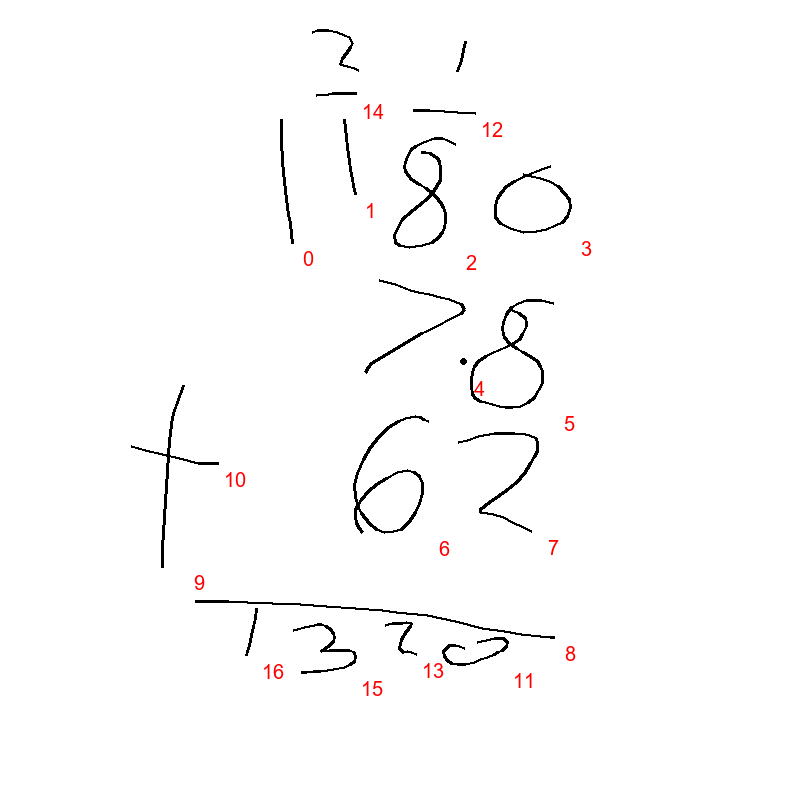 2 1
14 12
1180
0 1 2 3
78
4 5
+ 62
10 6 7
9 8
1320
16 15 13 11